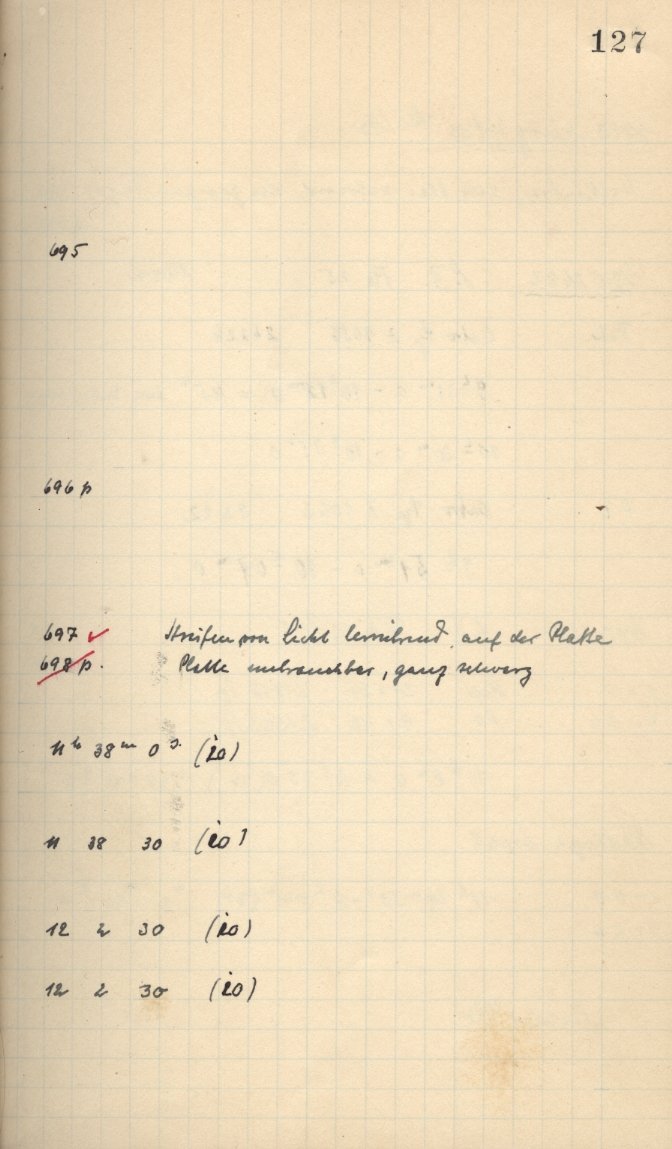 127
695
696 p
697 ✓ Streifen von Licht herrührend, auf der Platte
698 p. Platte unbrauchbar, ganz schwarz
11 h 38 m 0 s. (20)
11 38 30 (20)
12 2 30 (20)
12 2 30 (20)